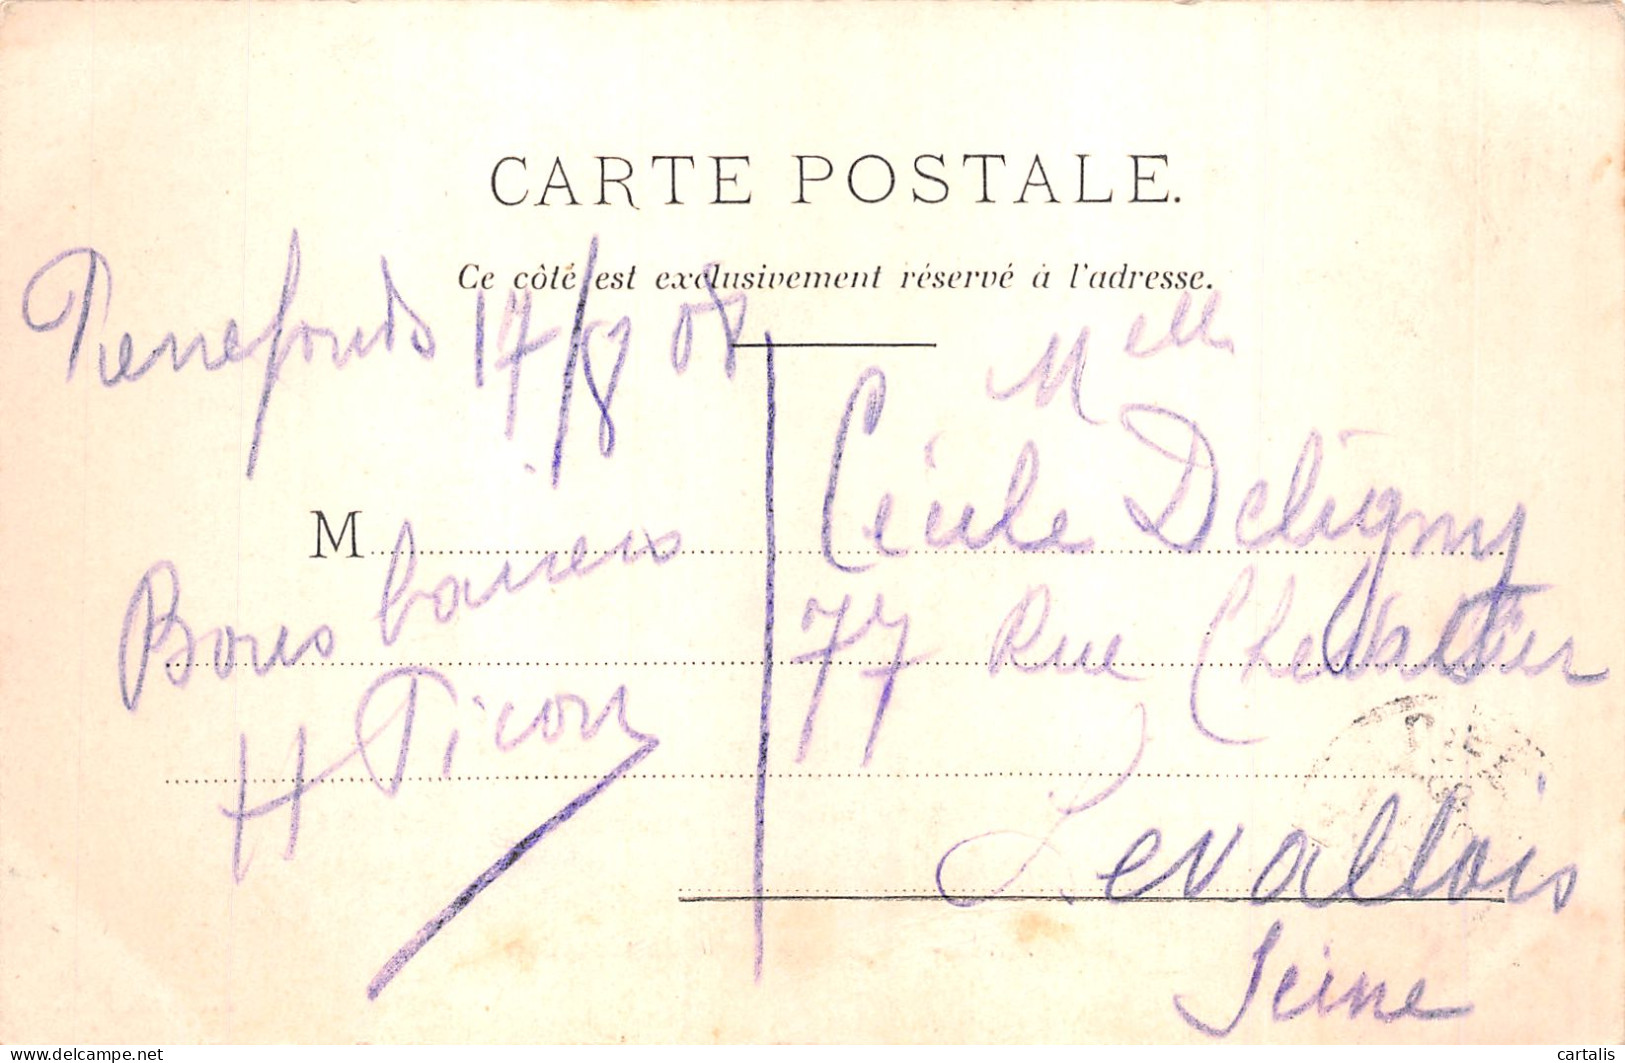 CARTE POSTALE.
Ce côté est exclusivement réservé à l'adresse.
Pierrefonds 17/8 08
M
Bons baisers
H Picon
Melle
Cécile Deligny
77 Rue Chevallier
Levallois
Seine
delcampe.net
cartalis